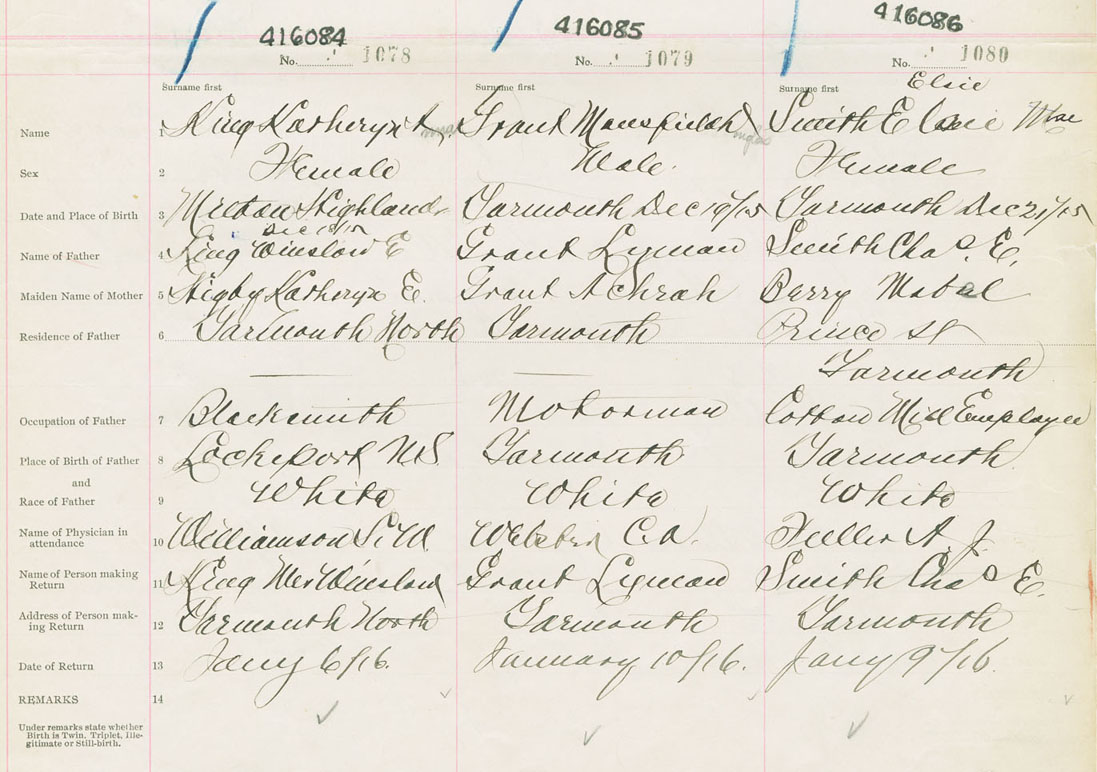 416084 416085 416086
No. 1078 No. 1079 No. 1080
Elsie
Surname first Surname first Surname first
Name 1 King Katheryn Grant Mansfield Smith Elsie Mae
Sex 2 Female Male. Female
Date and Place of Birth 3 Milton Highlands Yarmouth Dec 19/15 Yarmouth Dec 21/15
Dec 18/15
Name of Father 4 King Winslow E Grant Lyman Smith Chas. E.
Maiden Name of Mother 5 Higby Katheryn E. Grant A Berry Mabel
Residence of Father 6 Yarmouth North Yarmouth Prince St
Yarmouth
Occupation of Father 7 Blacksmith Motorman Cotton Mill Employee
Place of Birth of Father 8 Lockeport N.S. Yarmouth Yarmouth
and
Race of Father 9 White White White
Name of Physician in
attendance 10 Williamson S. W. Webster C.A. Fuller A. J.
Name of Person making
Return 11 King Mrs Winslow Grant Lyman Smith Chas E.
Address of Person mak-
ing Return 12 Yarmouth North Yarmouth Yarmouth
Date of Return 13 Jany 6/16. January 10/16. Jany 9/16.
REMARKS 14
Under remarks state whether
Birth is Twin, Triplet, Ille-
gitimate or Still-birth.